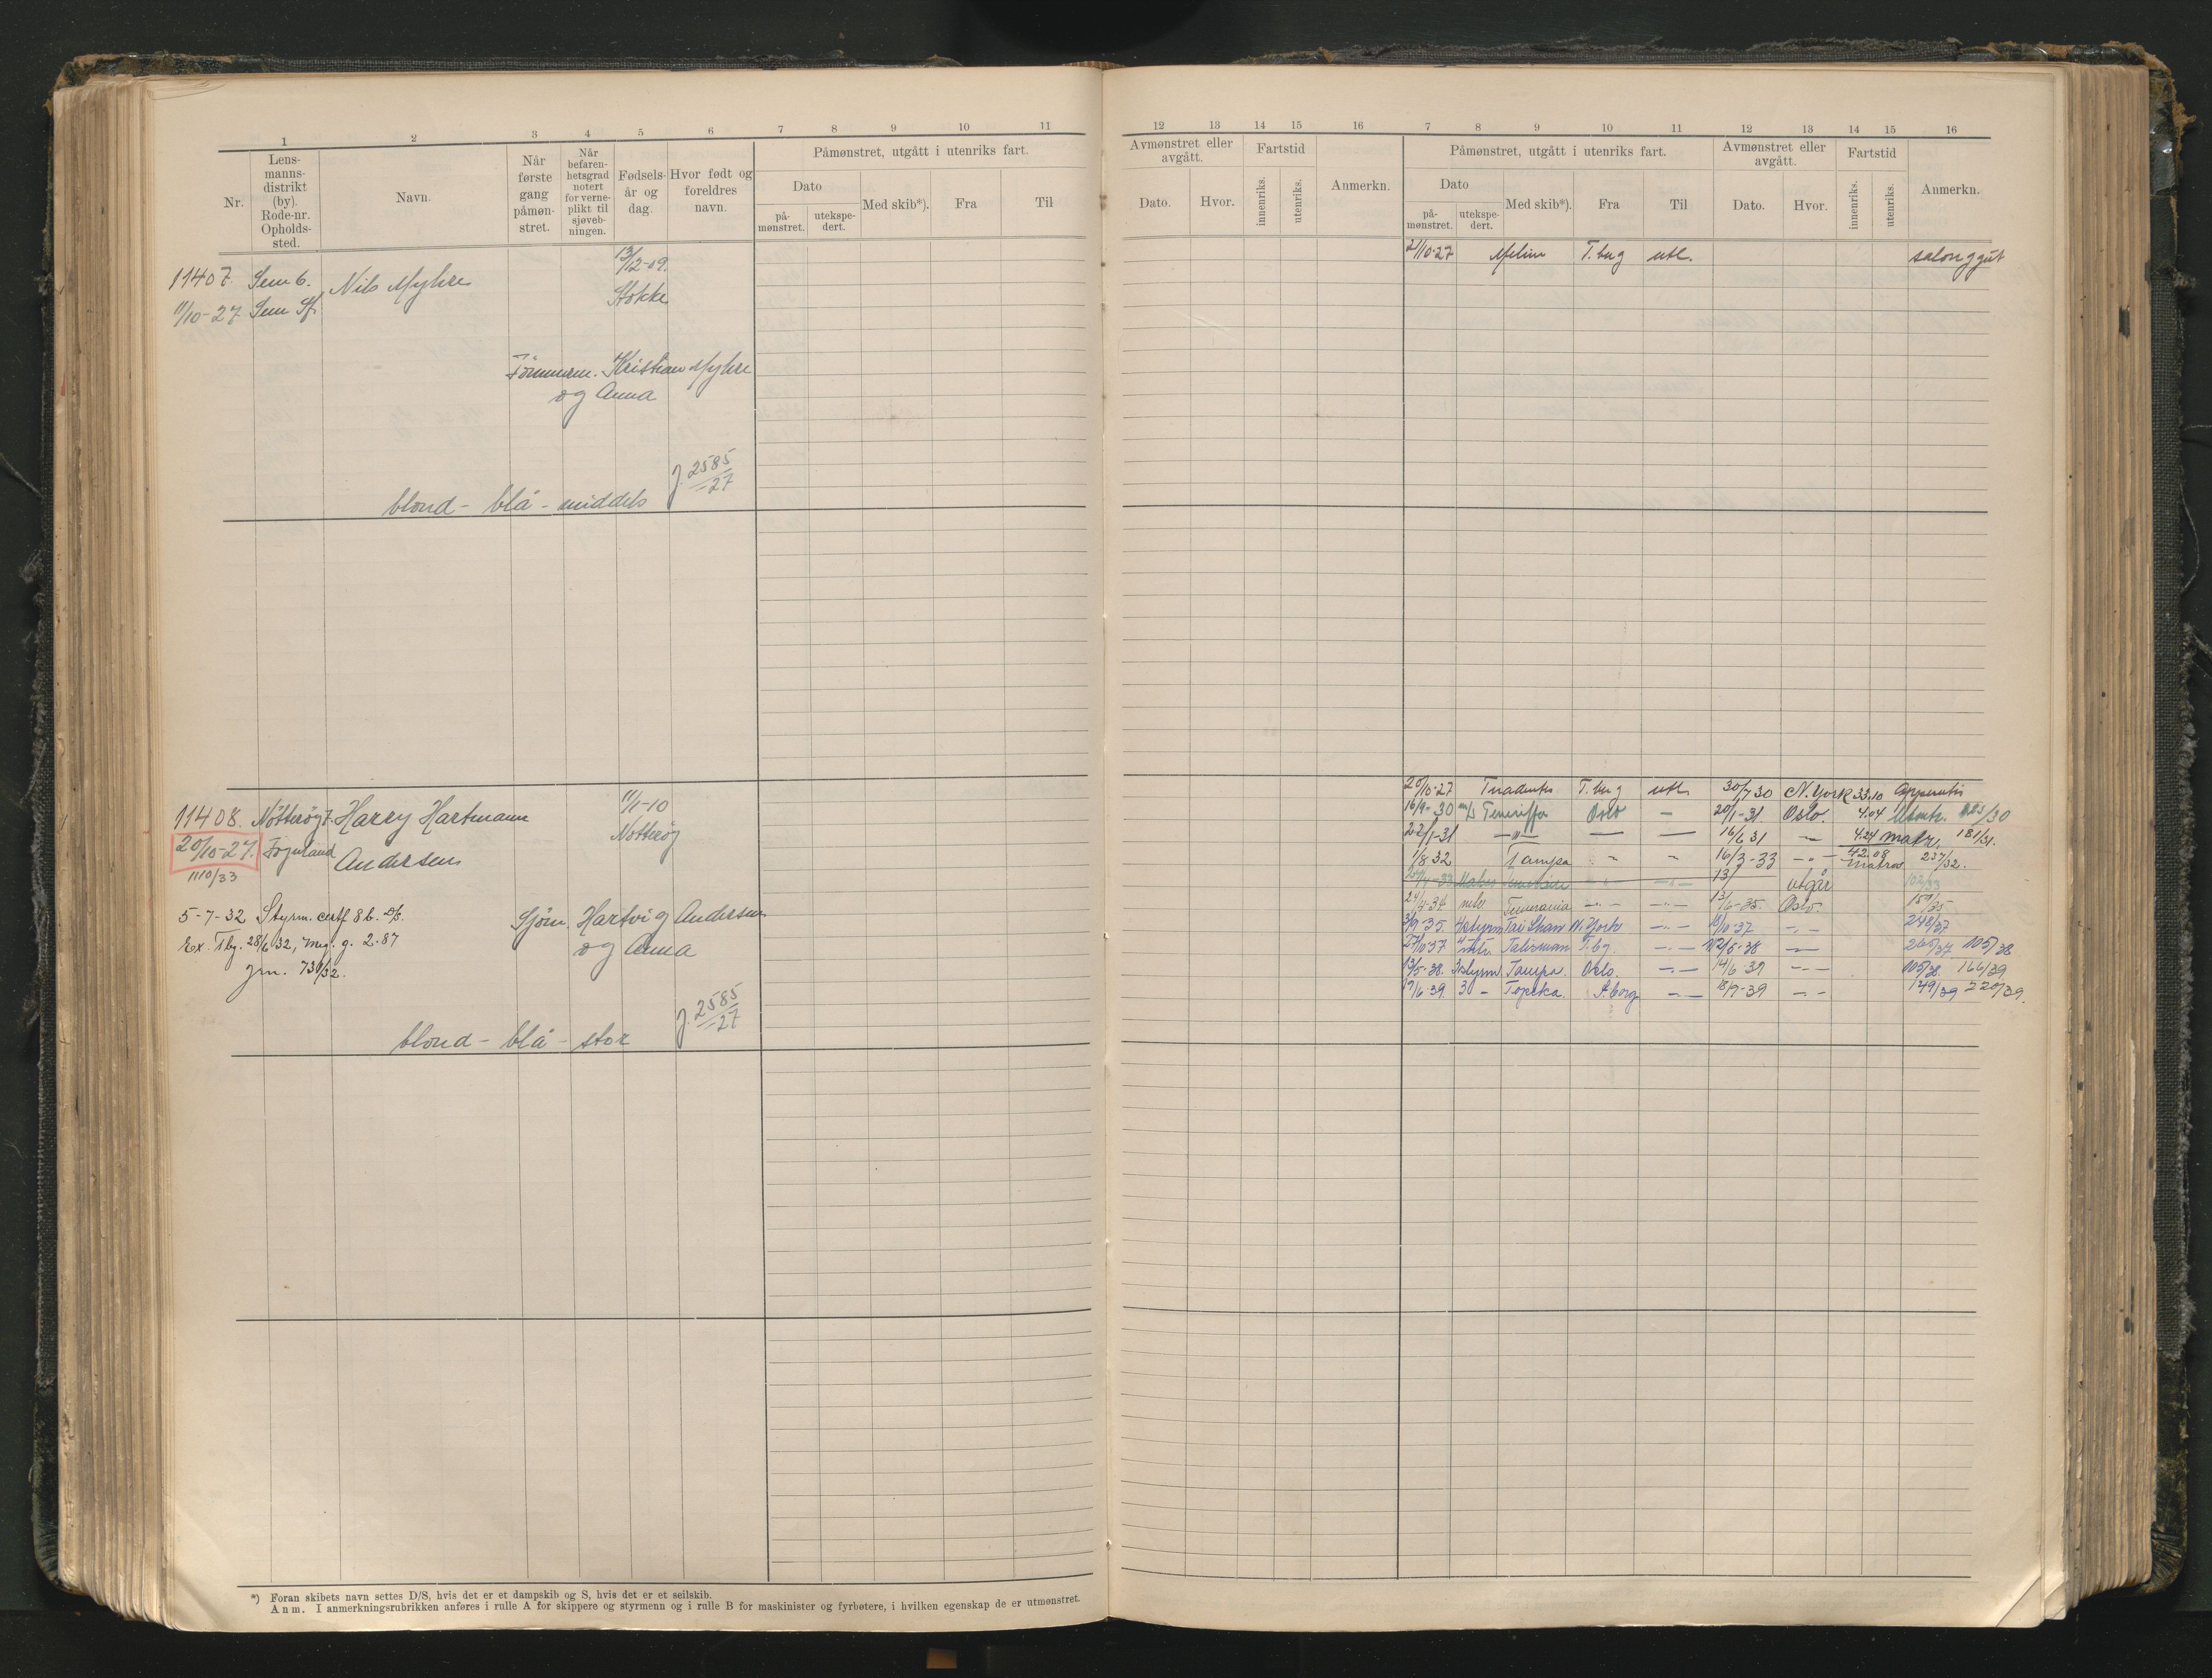 1 2 3 4 5 6 7 8 9 10 11
Nr.
Lens-
manns-
distrikt
(by).
Rode-nr.
Opholds-
sted.
Navn.
Når
første
gang
påmøn-
stret.
Når
befaren-
hetsgrad
notert
for verne-
plikt til
sjøveb-
ningen.
Fødsels-
år og
dag.
Hvor født og
foreldres
navn.
Påmønstret, utgått i utenriks fart.
Dato
på-
mønstret.
utekspe-
dert.
Med skib*).
Fra
Til
11407. Sem 6. Nils Myhre 13/12-09.
Stokke
11/10-27. Sem St.
Tømmerm. Kristian Myhre
og Anna
j. 2585
-27
blond - blå - middels
11408. Nøtterøy 7. Harry Hartmann 11/1-10
20/10-27. Føynland Andersen Nøtterøy
1110/33
5-7-32 Styrm. certf 86. D/S. Sjøm. Hartvig Andersen
Ex. Tbg. 28/6 32, meg. g. 2.87 og Anna
jrn. 730/32.
j. 2585
-27
blond - blå - stor
*) Foran skibets navn settes D/S, hvis det er et dampskib og S, hvis det er et seilskib.
Anm. I anmerkningsrubrikken anføres i rulle A for skippere og styrmenn og i rulle B for maskinister og fyrbøtere, i hvilken egenskap de er utmønstret.
12 13 14 15 16 7 8 9 10 11 12 13 14 15 16
Avmønstret eller
avgått.
Dato.
Hvor.
Fartstid
innenriks.
utenriks.
Anmerkn.
Påmønstret, utgått i utenriks fart.
Dato
på-
mønstret.
utekspe-
dert.
Med skib*).
Fra
Til
Avmønstret eller
avgått.
Dato.
Hvor.
Fartstid
innenriks.
utenriks.
Anmerkn.
21/10-27 Melin T.berg utl. salonggut
20/10-27 T.berg utl. 30/7 30 N.York 33.10
16/9-30 m/s Teneriffa Oslo - 20/1-31 Oslo. 4.04 /30
22/1-31 -"- — — 16/6 31 — 4.24 matr. 181/31.
1/8 32 Tampa -"- -"- 16/3-33 -"- 42.08 matros 237/32.
13/ utgår
24/4-34 Temerania -"- -"- 13/6-35. Oslo. 151/35
3/9-35. 4 styrm Tai Shan N.York -"- 11/10-37 -"- 248/37
27/10 37 4 Talisman T.bg. -"- 12/5-38 — 265/37 105/38
13/5-38. 3 styrm Tampa. Oslo. -"- 14/6-39 -"- 105/38. 166/39
17/6-39. 3 - Topeka. S.borg -"- 18/7-39 -"- 149/39 220/39.